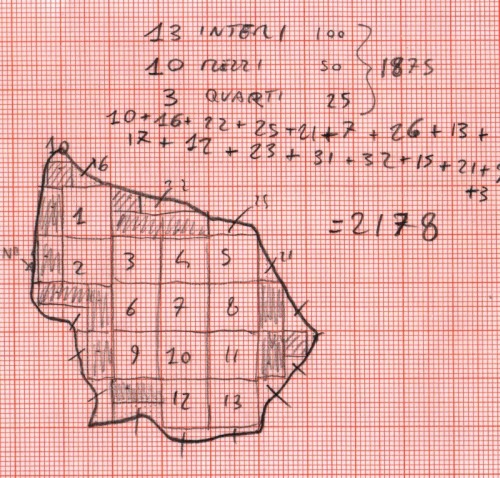 13 INTERI 100
10 MEZZI 50 } 1875
3 QUARTI 25
10+16+22+25+21+7+26+13+
17+12+23+31+32+15+21+
+3
=2178
10
16
22
25
1
2
3
4
5
21
N°
6
7
8
9
10
11
12
13